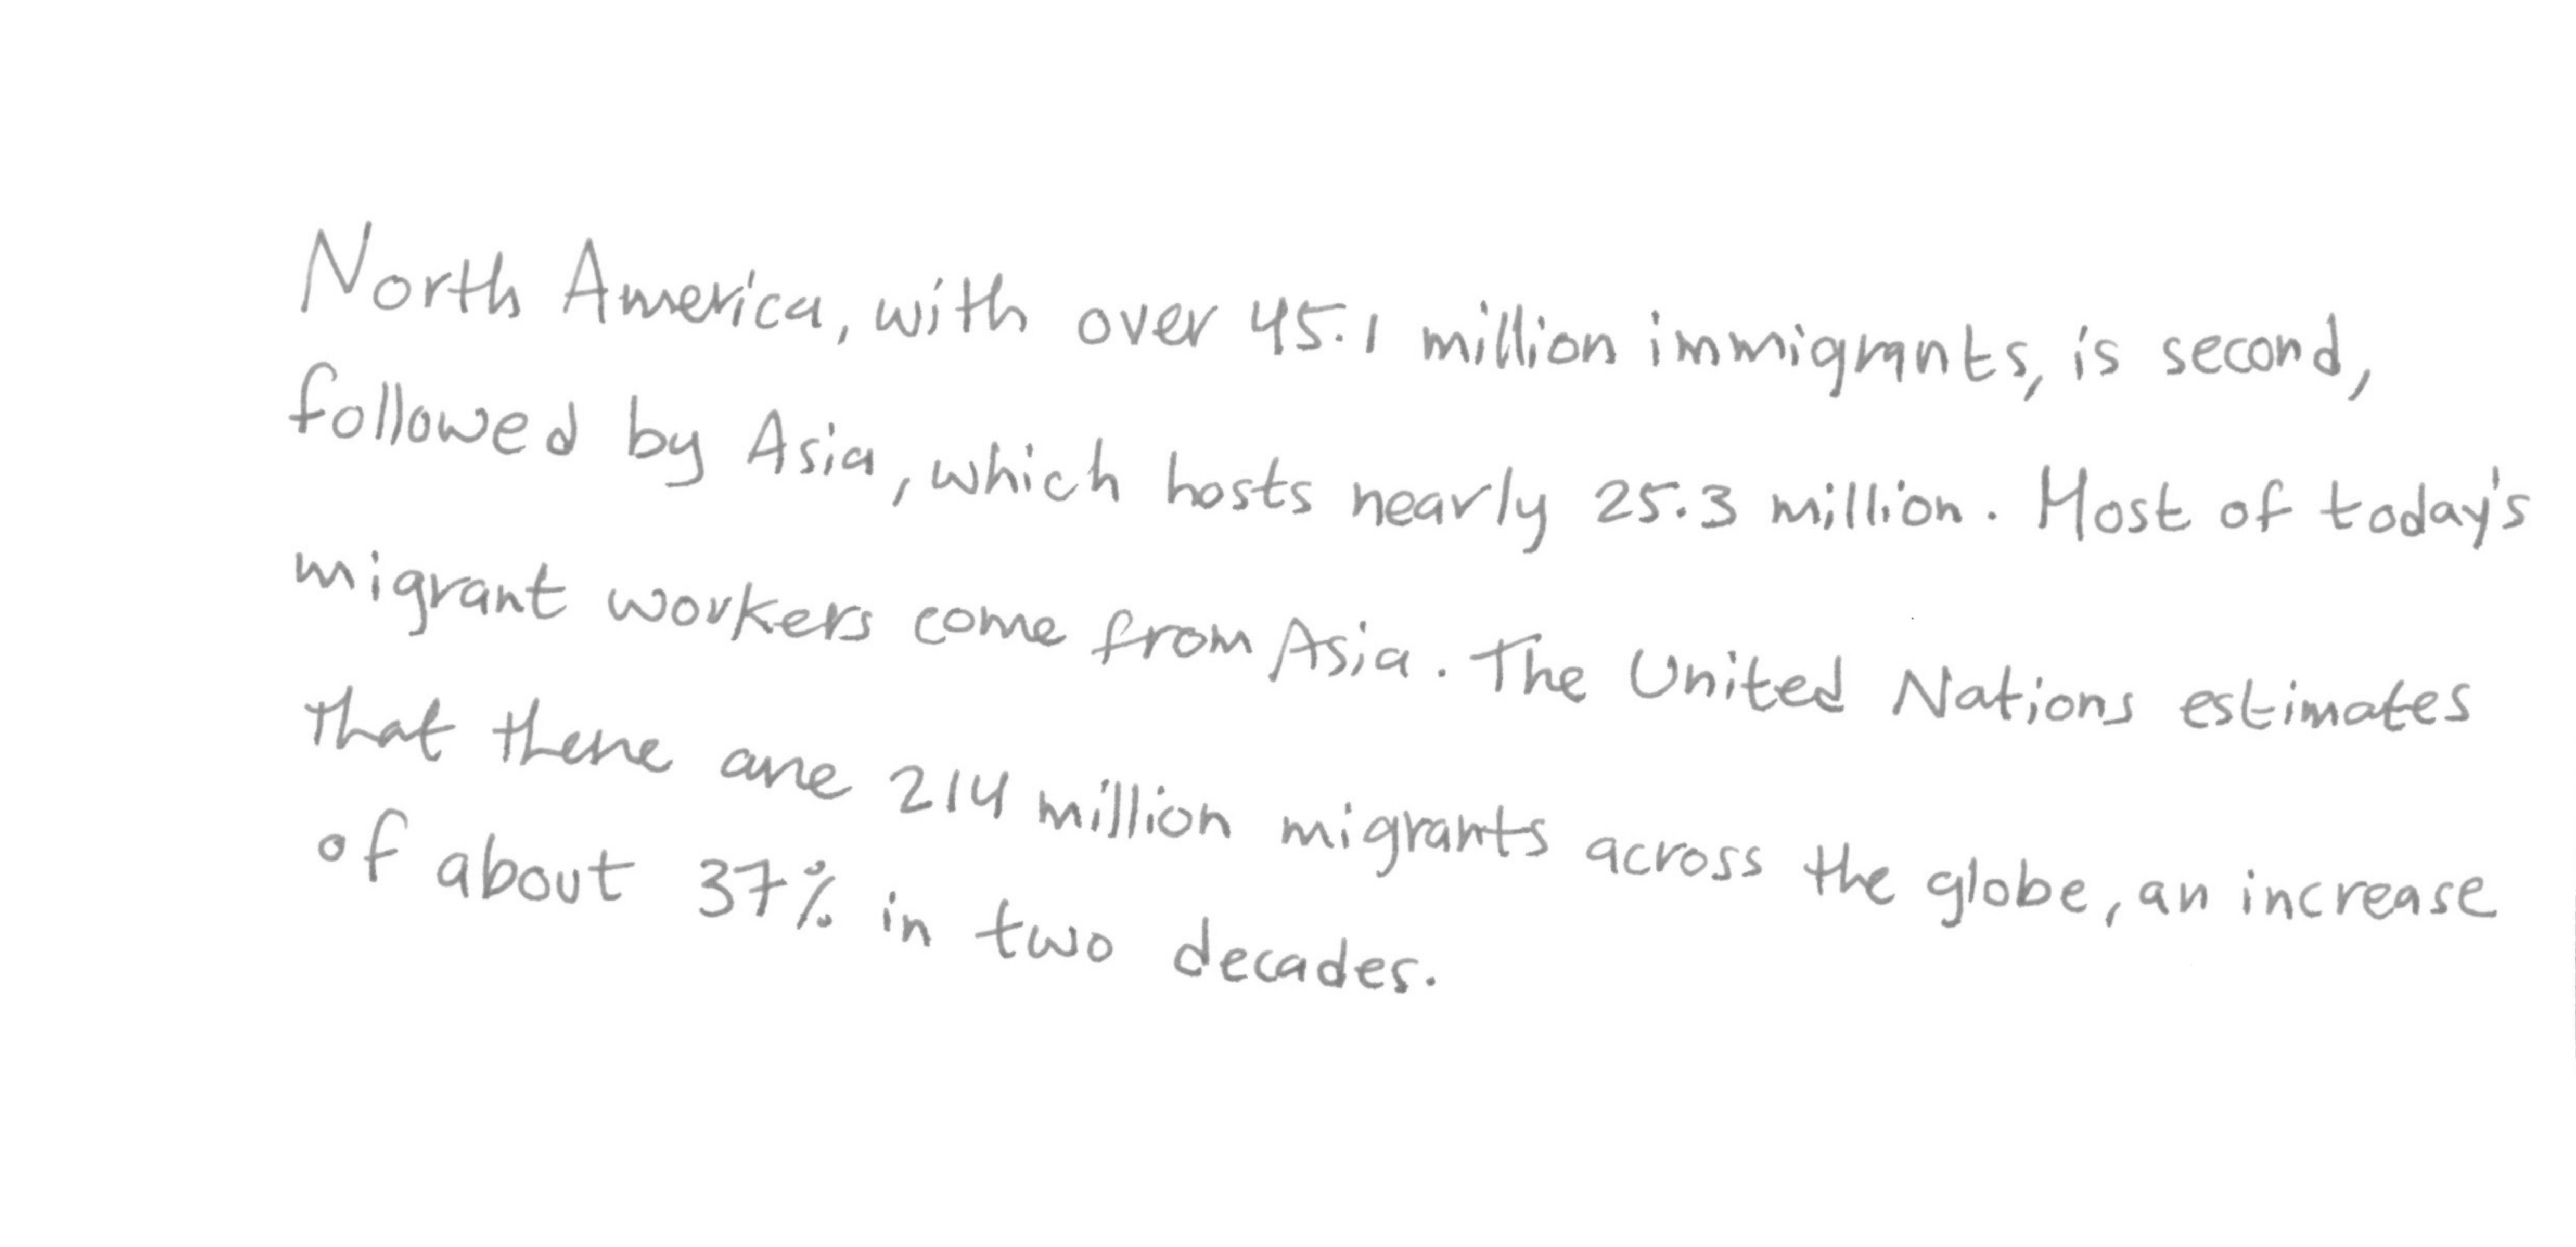 North America, with over 45.1 million immigrants, is second,
followed by Asia, which hosts nearly 25.3 million. Most of today's
migrant workers come from Asia. The United Nations estimates
that there are 214 million migrants across the globe, an increase
of about 37% in two decades.